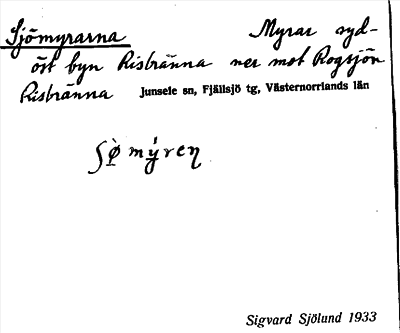 Sjömyrarna Myrar syd-
öst byn Risbränna ner mot Rogsjön
Risbränna Junsele sn, Fjällsjö tg, Västernorrlands län
Sigvard Sjölund 1933